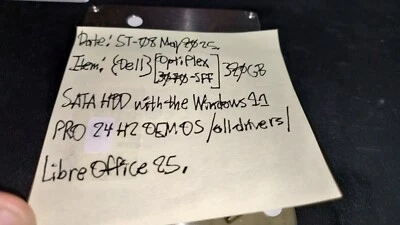 Date: ST-08 May 2025.
Item: {Dell} [OptiPlex 3070-SFF] 320GB
SATA HDD with the Windows 11
PRO 24H2 OEM OS /all drivers/
Libre Office 25.